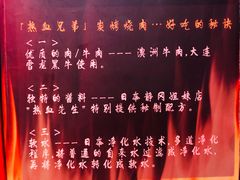 「热血兄弟」炭烤烧肉---好吃的秘诀
<一>
优质的肉/牛肉----澳洲牛肉,大连
雪龙黑牛使用。
<二>
独特的酱料----日本静冈姐妹店
“热血先生”特别提供秘制配方。
<三>
软水----日本净化水技术,多道净化
程序,将普通的自来水过滤成净化水,
再将净化水转化成软水。